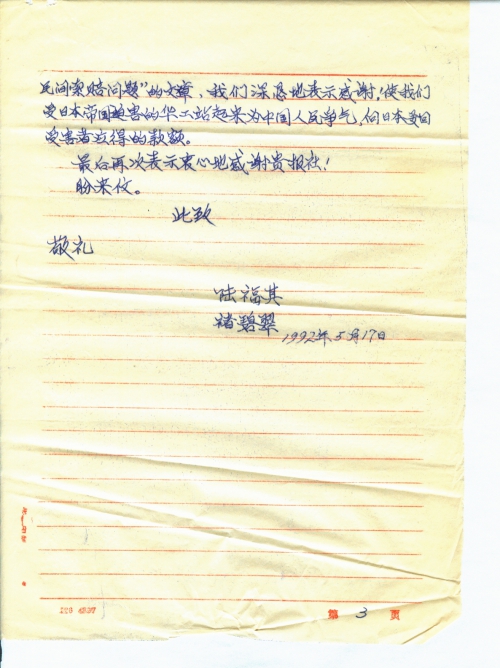 民间索赔问题”的文章、我们深恳地表示感谢！使我们
受日本帝国迫害的华工站起来为中国人民争气，向日本要回
受害者应得的款额。
最后再次表示衷心地感谢贵报社！
盼来仪。
此致
敬礼
陆福其
褚碧翠
1992年5月17日
第 3 页